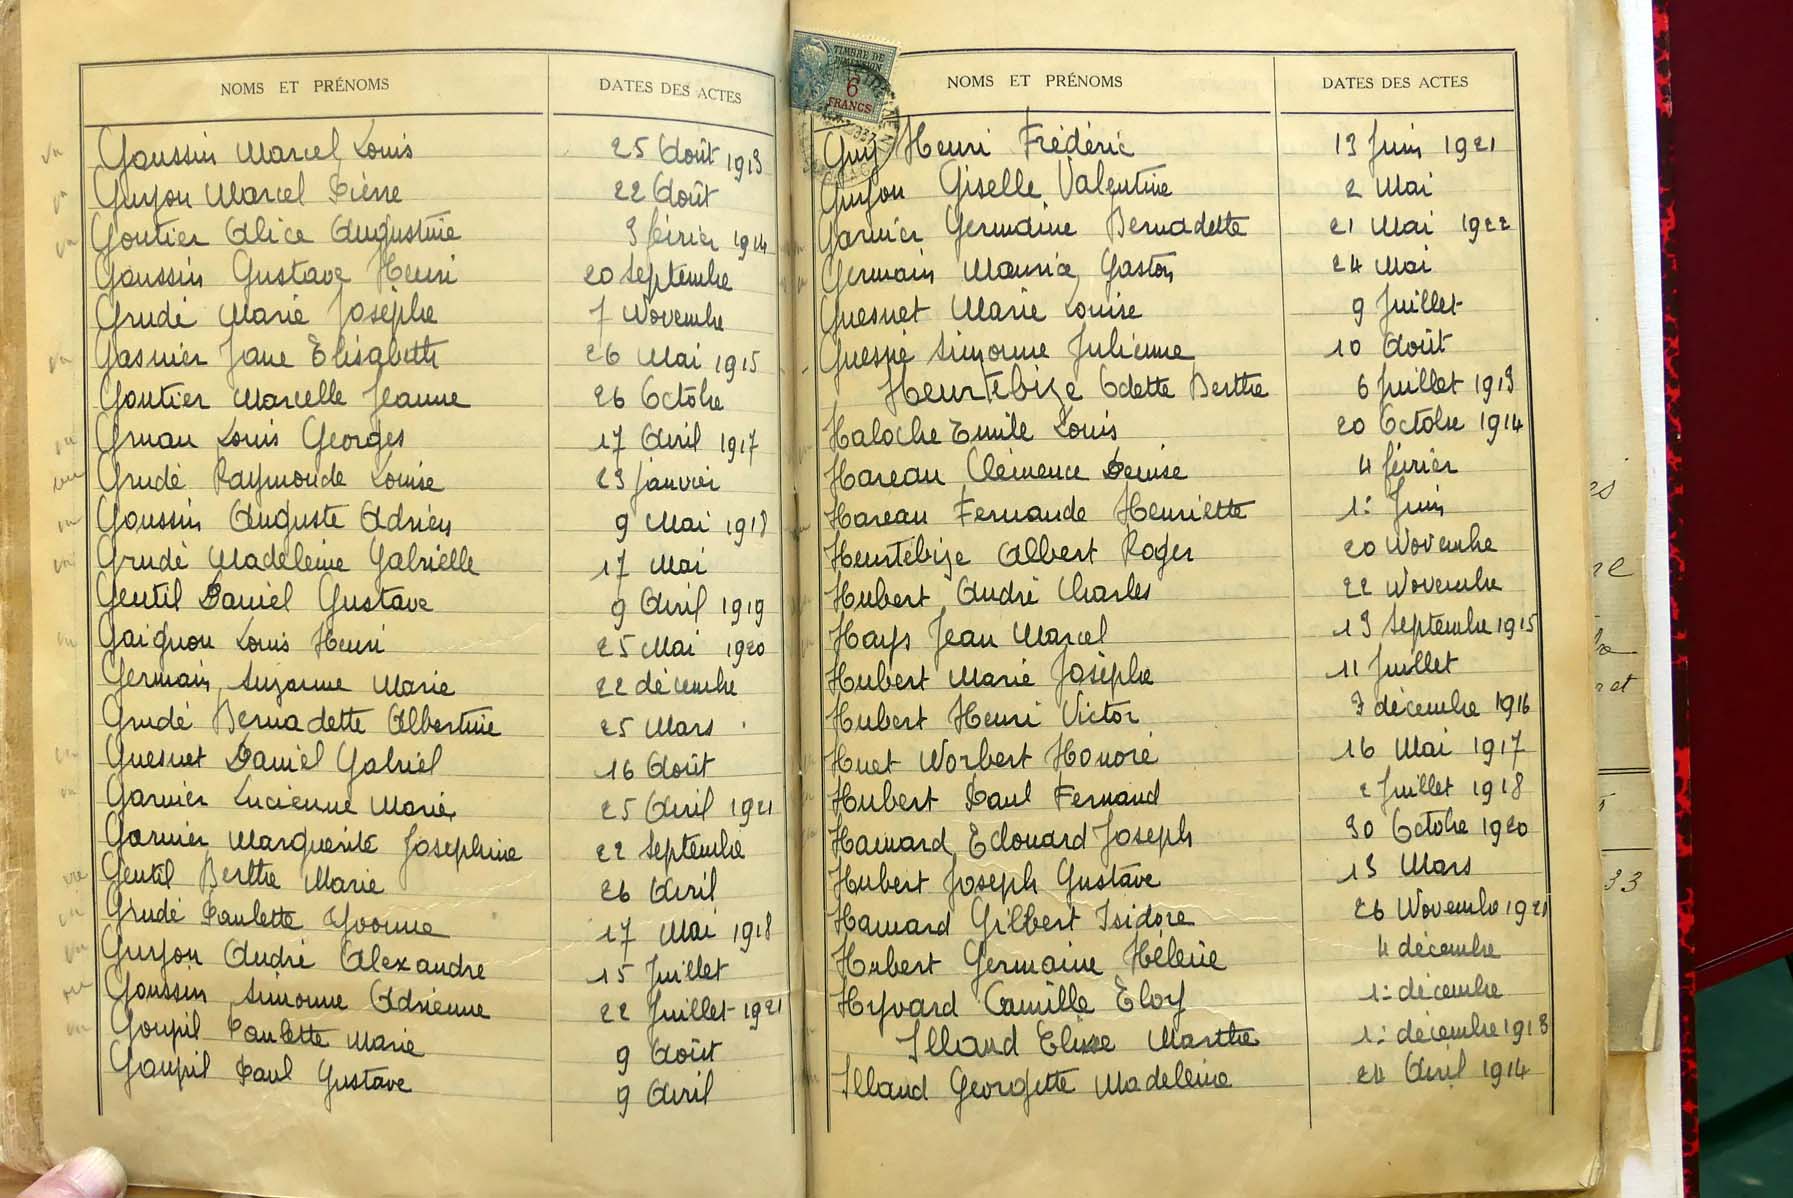 NOMS ET PRÉNOMS DATES DES ACTES
Goussin Marcel Louis 25 Août 1913
Guyon Marcel Pierre 22 Août
Goutier Alice Augustine 3 février 1914
Goussin Gustave Henri 20 Septembre
Grudé Marie Josèphe 7 Novembre
Gasnier Jane Elisabeth 26 Mai 1915
Goutier Marcelle Jeanne 26 Octobre
Gruau Louis Georges 17 Avril 1917
Grudé Raymonde Louise 23 janvier
Goussin Auguste Adrien 9 Mai 1918
Grudé Madeleine Gabrielle 17 Mai
Gentil Daniel Gustave 9 Avril 1919
Gaignon Louis Henri 25 Mai 1920
Germain Suzanne Marie 22 décembre
Grudé Bernadette Albertine 25 Mars
Guesnet Daniel Gabriel 16 Août
Garnier Lucienne Marie 25 Avril 1921
Garnier Marguerite Josephine 22 Septembre
Gentil Berthe Marie 26 Avril
Grudé Paulette Yvonne 17 Mai 1918
Guyon André Alexandre 15 Juillet
Goussin Simonne Adrienne 22 Juillet 1921
Goupil Paulette Marie 9 Août
Goupil Paul Gustave 9 Avril
TIMBRE DE
DIMENSION
6
FRANCS
NOMS ET PRÉNOMS DATES DES ACTES
Guy Henri Frédéric 13 Juin 1921
Guyon Giselle Valentine 2 Mai
Garnier Germaine Bernadette 21 Mai 1922
Germain Maurice Gaston 24 Mai
Guesnet Marie Louise 9 Juillet
Guespié Simonne Julienne 10 Août
Heurtebize Odette Berthe 6 Juillet 1913
Haloche Emile Louis 20 Octobre 1914
Hareau Clémence Denise 4 février
Hareau Fernande Henriette 1: Juin
Heurtebize Albert Roger 20 Novembre
Hubert André Charles 22 Novembre
Hays Jean Marcel 13 Septembre 1915
Hubert Marie Josèphe 11 Juillet
Hubert Henri Victor 7 décembre 1916
Huet Norbert Honoré 16 Mai 1917
Hubert Paul Fernand 2 Juillet 1918
Hamard Edouard Joseph 30 Octobre 1920
Hubert Joseph Gustave 13 Mars
Hamard Gilbert Isidore 26 Novembre 1921
Hubert Germaine Hélène 4 décembre
Hyvard Camille Eloy 1: décembre
Illand Elise Marthe 1: décembre 1913
Illand Georgette Madeleine 24 Avril 1914
33